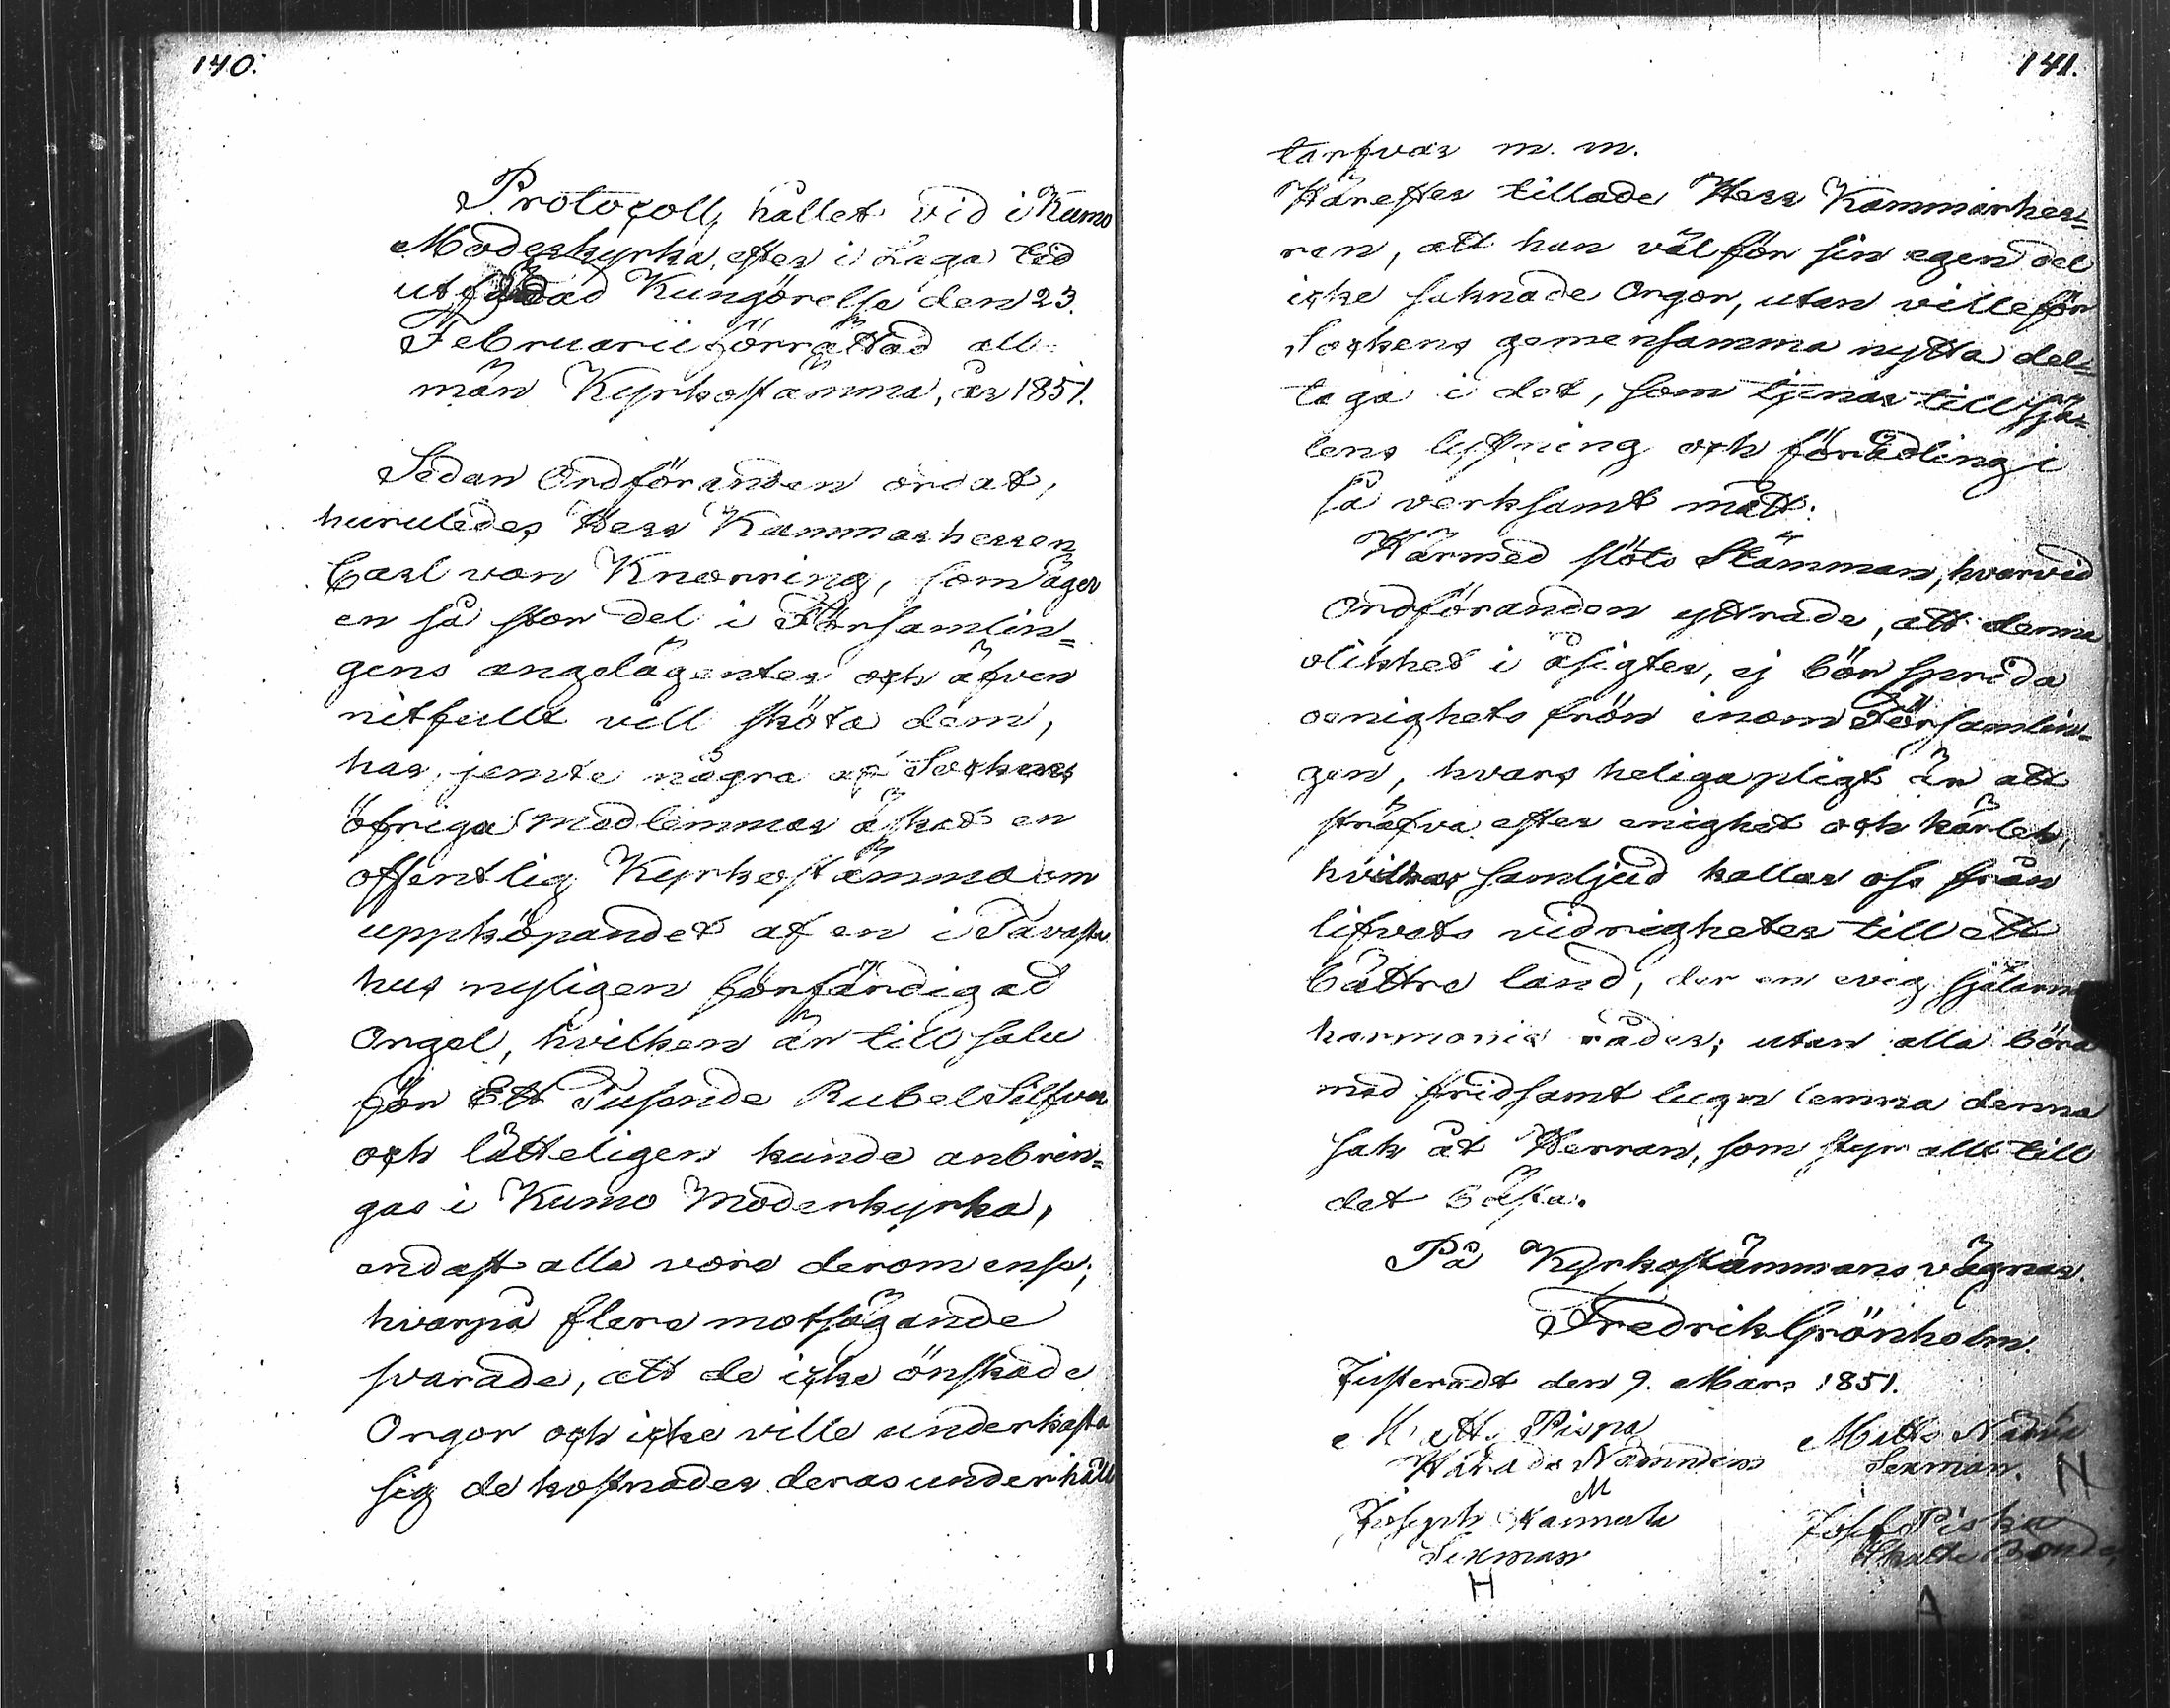 140.
Protocoll, hållet vid i Kumo
Moderkyrka, efter i Laga tid
utfärdad Kungörelse den 23.
Februarii förrättad all-
män Kyrkostämma, år 1851.
Sedan Ordföranden ordat,
huruledes Herr Kammarherren
Carl von Knorring, som äger
en så stor del i Församlin=
gens angelägenter och äfven
nitfullt vill sköta dem,
har, jemte några af Socknens
öfriga Medlemmar äskat en
offentlig Kyrkostämma om
uppköpandet af en i Tavaste
hus nyligen förfärdigad
Orgel, hvilken är till salu
för Ett Tusende Rubel Silfver
och lätteligen kunde anbrin=
gas i Kumo Moderkyrka,
endast alla vore derom ense;
hvarpå flere motsägande
svarade, att de icke önskade
Orgor och icke ville underkasta
sig de kostnader deras underhåll
141.
tarfvar m. m.
Härefter tillade Herr Kammarher=
ren, att han väl för sin egen del
icke saknade Orgor, utan ville för
Sockens gemensamma nytta del=
taga i det, som tjenar till sjä=
lens lyftning och förädling i
så verksamt mått.
Härmed slöts Stämman, hvarvid
Ordföranden yttrade, att denna
olikhet i åsigter, ej bör sprida
oenighets frön inom Församlin=
gen, hvars heliga pligt är att
sträfva efter enighet och kärlek,
hvilkas samljud kallar oss från
lifvets vidrigheter till ett
bättre land, der en evig själarnes
harmonie råder; utan alla böra
med fridsamt lugn lemna denna
sak åt Herran, som styr allt till
det bästa.
På Kyrkostämmans vägnar.
Fredrik Grönholm.
Justeradt den 9. Mars 1851.
Matts Pispa
Härads Nämndem
M
Matts
Sexman. N
Joseph
Sexman
H
Josef Piska
Bonde
A